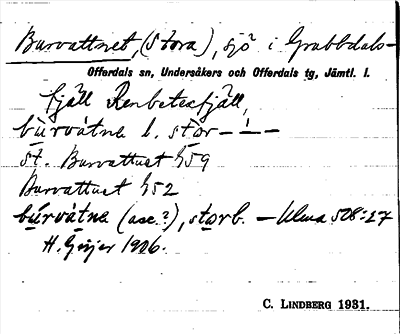 Burvattnet, (Stora), sjö i Grubbdals-
Offerdals sn, Undersåkers och Offerdals tg, Jämtl. l.
fjäll Renbetesfjäll,
bùrvàtnə l. stor – – –
st. Burvattnet 459
Burvattnet 452
bùrvàtnə (acc.?), storb. – Ulma 508:27
H. Geijer 1906.
C. LINDBERG 1931.